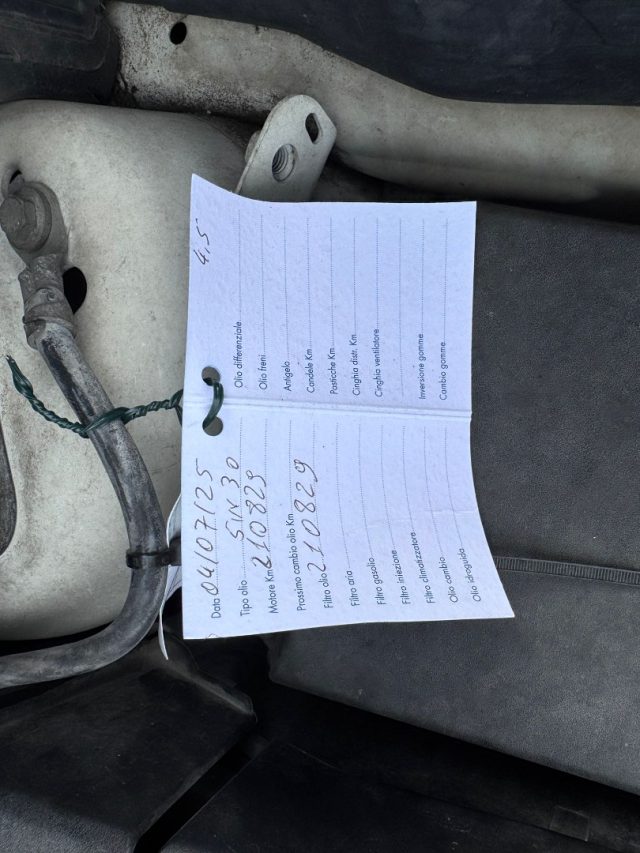 Data 04/07/25
Tipo olio 5W30
Motore Km 210829
Prossimo cambio olio Km
Filtro olio 210829
Filtro aria
Filtro gasolio
Filtro iniezione
Filtro climatizzatore
Olio cambio
Olio idroguida
4,5
Olio differenziale
Olio freni
Antigelo
Candele Km
Pasticche Km
Cinghia distr. Km
Cinghia ventilatore
Inversione gomme
Cambio gomme